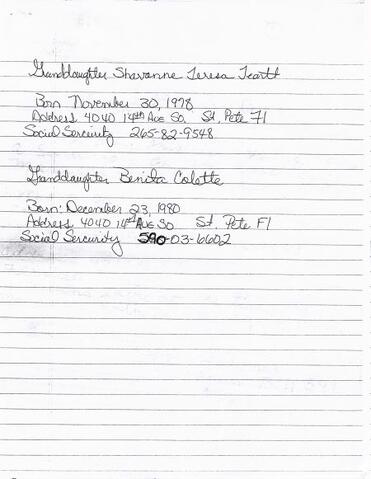 Granddaughter Shavanne Teresa Teartt
Born November 30, 1978
Address 4040 14th Ave So. St. Pete Fl
Social Sercurity 265-82-9548
Granddaughter Benita Colette
Born: December 23, 1980
Address 4040 14th Ave So St. Pete Fl
Social Sercurity 590-03-6602